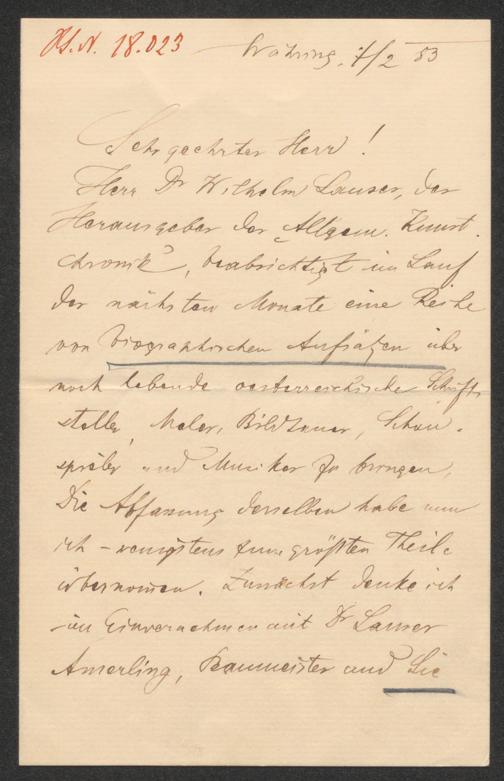 Hs. N. 18.023
Währing, 7/2 83
Sehr geehrter Herr!
Herr Dr Wilhelm Lauser, der
Herausgeber der „Allgem. Kunst-
chronik“, beabsichtigt im Lauf
der nächsten Monate eine Reihe
von biographischen Aufsätzen über
noch lebende oesterreichische Schrift-
steller, Maler, Bildhauer, Schau-
spieler und Musiker zu bringen.
Die Abfassung derselben habe nun
ich – wenigstens zum größten Theile
übernommen. Zunächst denke ich
im Einvernehmen mit Dr Lauser
Amerling, Baumeister und Sie